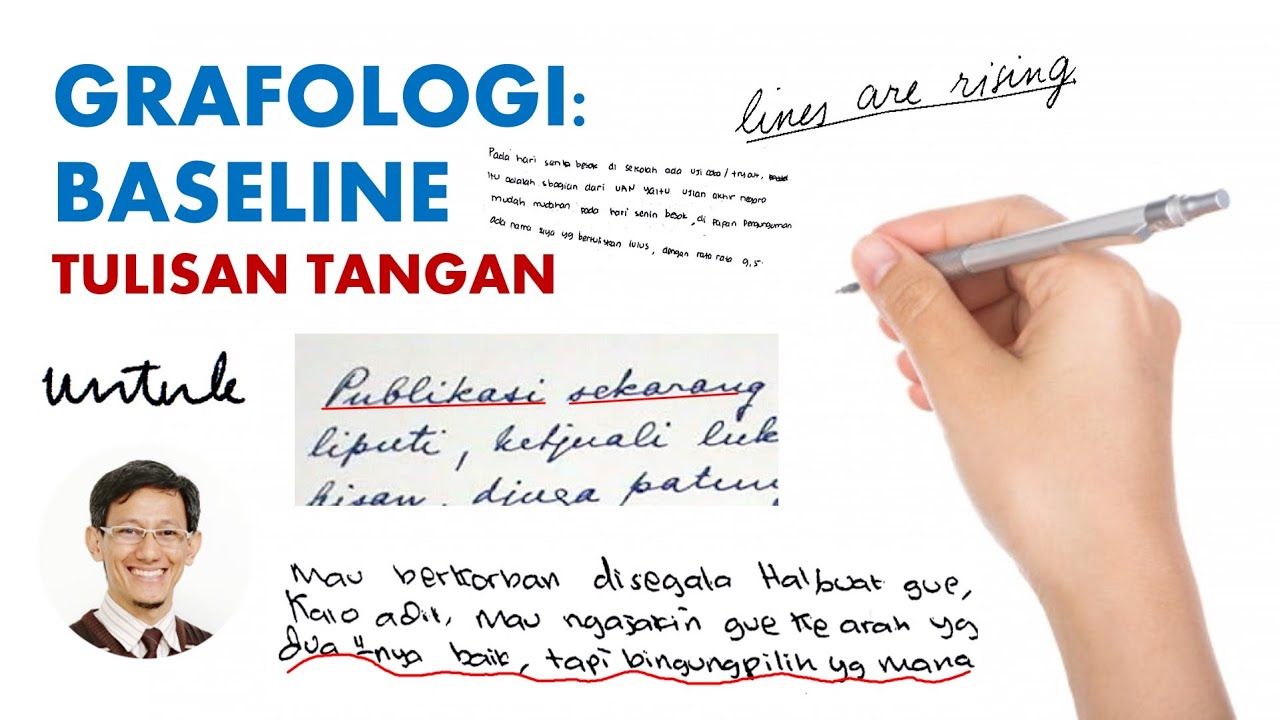 GRAFOLOGI:
BASELINE
TULISAN TANGAN
lines are rising
Pada hari senin besok di sekolah ada uji coba / tryout,
itu adalah sbagian dari UAN yaitu ujian akhir negara
mudah mudahan pada hari senin besok, di papan pengunguman
ada nama saya yg bertuliskan lulus, dengan rata rata 9,5.
untuk
Publikasi sekarang
liputi, ketjuali luk
kisan, djuga patun
Mau berkorban disegala Hal buat gue,
Kalo adil, Mau ngajakin gue ke arah yg
dua "nya baik, tapi bingung pilih yg mana